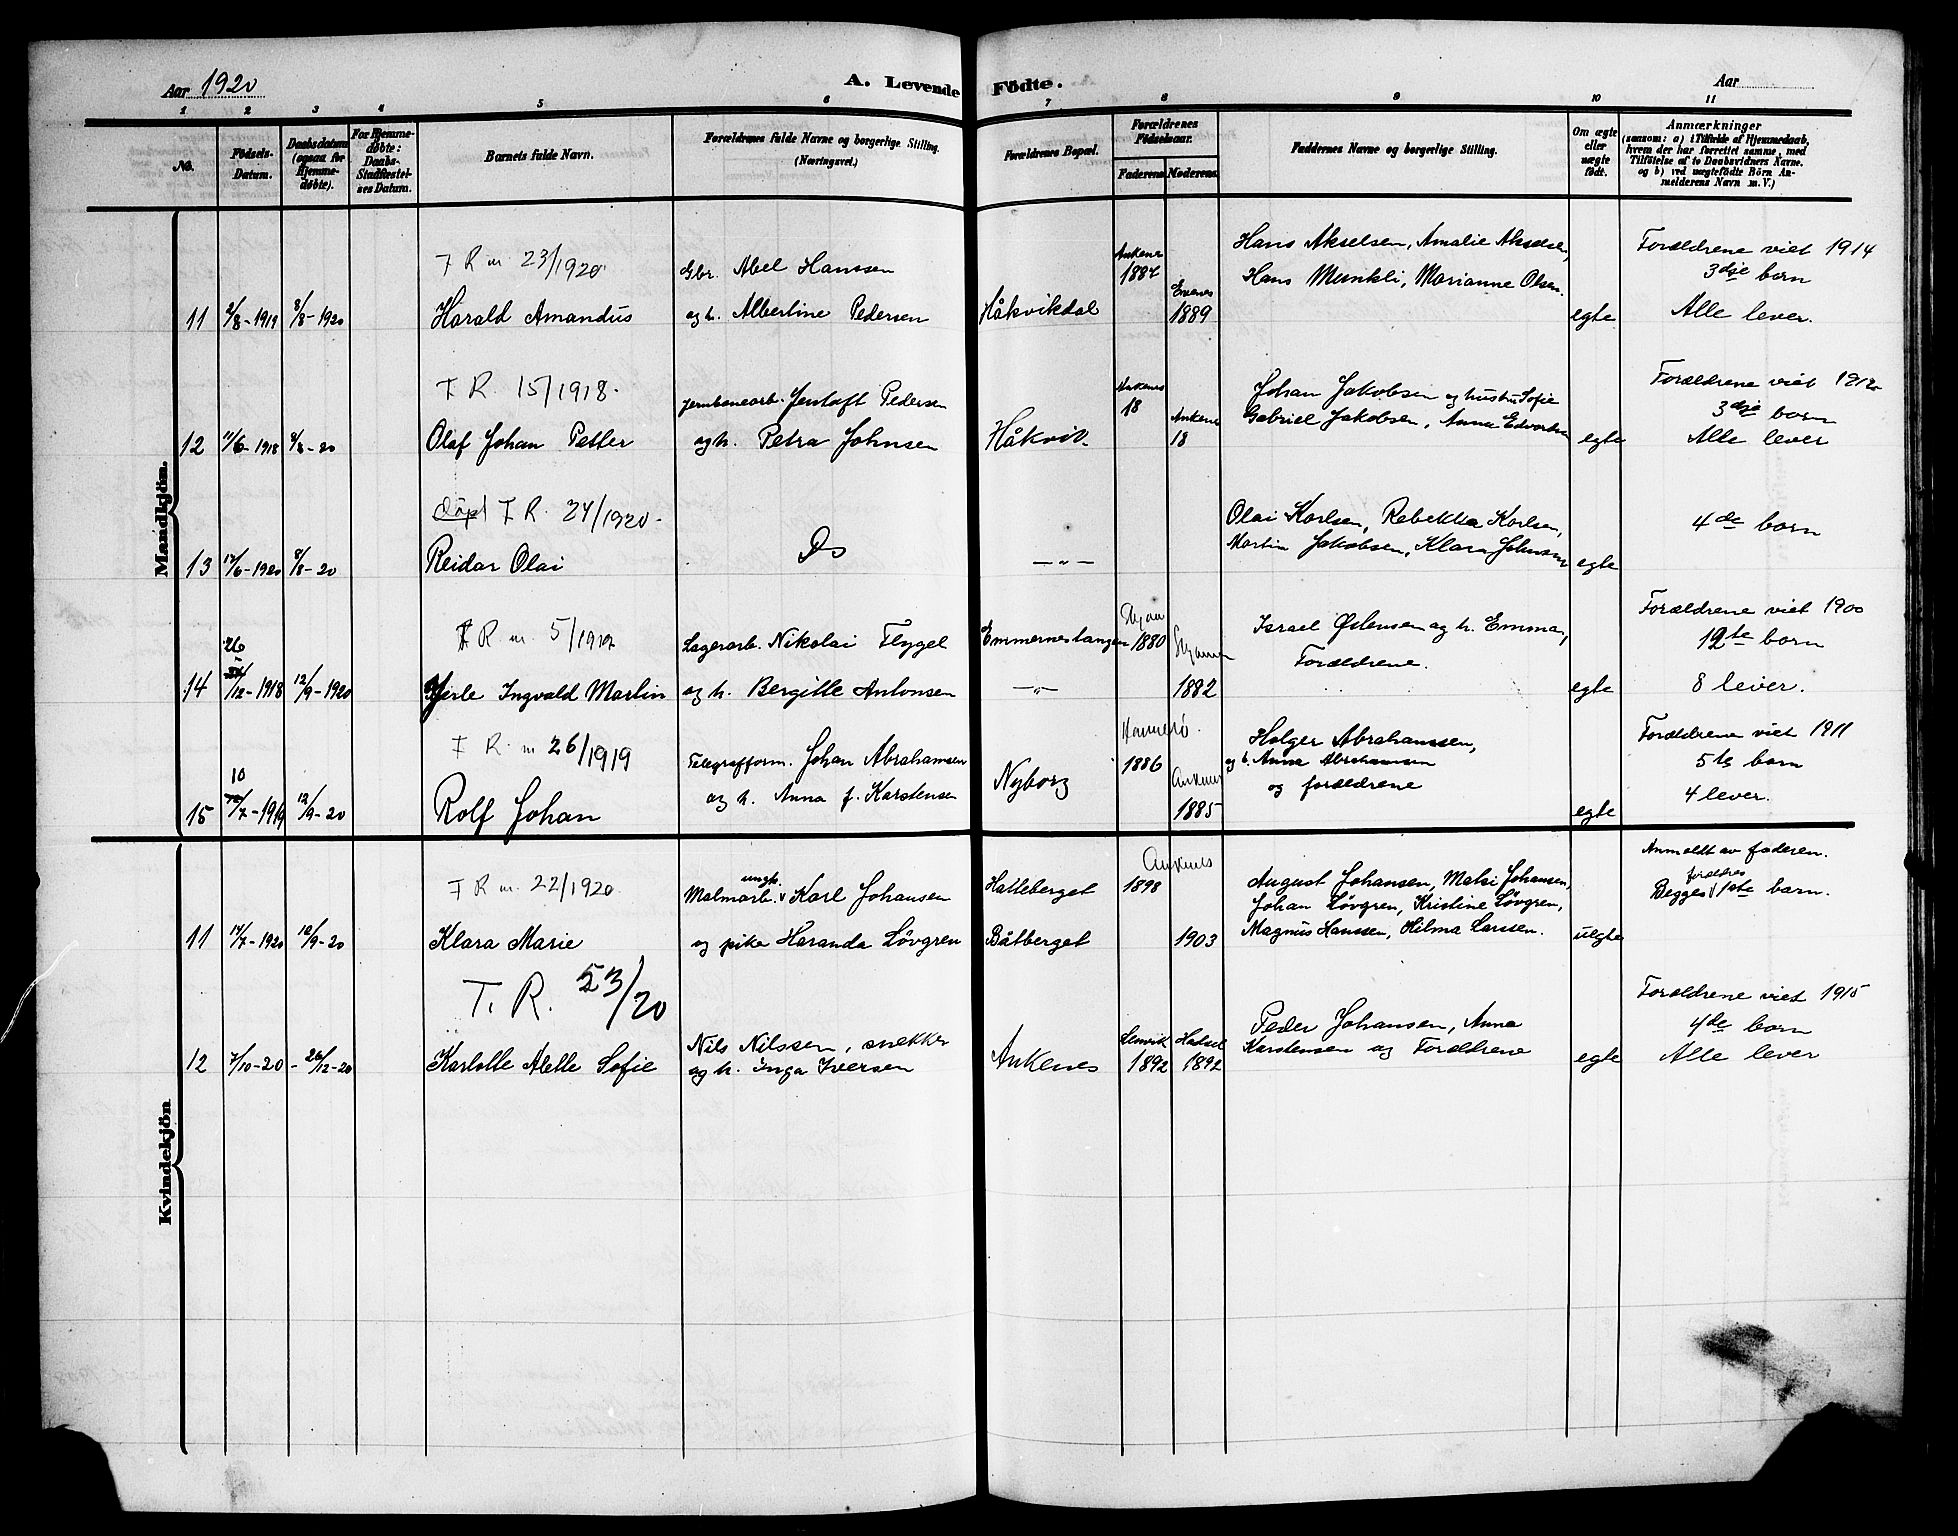 Aar 1920
A. Levende Födte.
Aar
1 2 3 4 5 6 7 8 9 10 11
No.
Födsels-
Datum.
Daabsdatum
(ogsaa for
Hjemme-
døbte).
For Hjemme-
døbte:
Daabs-
Stadfæstel-
ses Datum.
Barnets fulde Navn.
Forældrenes fulde Navne og borgerlige Stilling.
(Næringsvei.)
Forældrenes Bopæl.
Forældrenes
Födselsaar.
Faderens Moderens
Faddernes Navne og borgerlige Stilling.
Om ægte
eller
uægte
födt.
Anmærkninger
(saasom: a) i Tilfælde af Hjemmedaab,
hvem der har forrettet samme, med
Tilföielse af to Daabsvidners Navne,
og b) ved uægtefödte Börn An-
melderens Navn m. V.)
Mandkjön.
F R m 23/1920
Gbr. Abel Hanssen
Ankenes
1884
Hans Akselsen, Amalie Akselsen,
Hans Munkli, Marianne Olsen.
Forældrene viet 1914
3dje barn
11 2/8-1919 8/8-1920
Harald Amandus
og h. Albertine Pedersen
Håkvikdal
Evenes
1889
egte
Alle lever.
F R. 15/1918
Jernbanearb. Jentoft Pedersen
Ankenes
18
Johan Jakobsen og hustru Sofie
Gabriel Jakobsen, Anna
Forældrene viet 1912
3dje barn
12 11/6-1918 8/8-20
Olaf Johan Petter
og h. Petra Johnsen
Håkvik.
Ankenes
18
egte
Alle lever
døpt F R. 24/1920
Olai Karlsen, Rebekka Karlsen,
Martin Jakobsen, Klara Johnsen
4de barn
13 17/6-1920 8/8-20
Reidar Olai
Ds
— „ —
egte
F R m. 5/1919
Lagerarb. Nikolai Flygel
Emmernestangen
1880
Israel Østensen og h. Emma,
Forældrene.
Forældrene viet 1900
12te barn
26
14 /12-1918 12/9-1920
Hjerle Ingvald Martin
og h. Bergitte Antonsen
— „ —
1882
egte
8 lever.
F R. m 26/1919
Telegrafform. Johan Abrahamsen
Hamerø
1886
Holger Abrahamsen,
og h. Anna Abrahamsen
og forældrene
Forældrene viet 1911
5te barn
10
15 /7-1919 12/9-20
Rolf Johan
og h. Anna f. Karstensen
Nyborg
Ankenes
1885
egte
4 lever.
Kvindekjön
F R m. 22/1920
ungk.
Malmarb. v Karl Johansen
Hatteberget
Ankenes
1898
August Johansen, Matsi Johansen,
Johan Løvgren, Kristine Løvgren,
Magnus Hanssen, Hilma Larssen.
Anmeldt av faderen.
forældres
Begges v 1ste barn.
11 14/7-1920 12/9-20
Klara Marie
og pike Haranda Løvgren
Båtberget
1903
uegte
T. R. 53/20
Nils Nilssen, snekker
Lenvik
1892
Hadsel
1892
Peder Johansen, Anna
Karstensen og Forældrene
Forældrene viet 1915
4de barn
12 7/10-20 - 26/12-20
Karlotte Alette Sofie
og h. Inga Iversen
Ankenes
egte
Alle lever